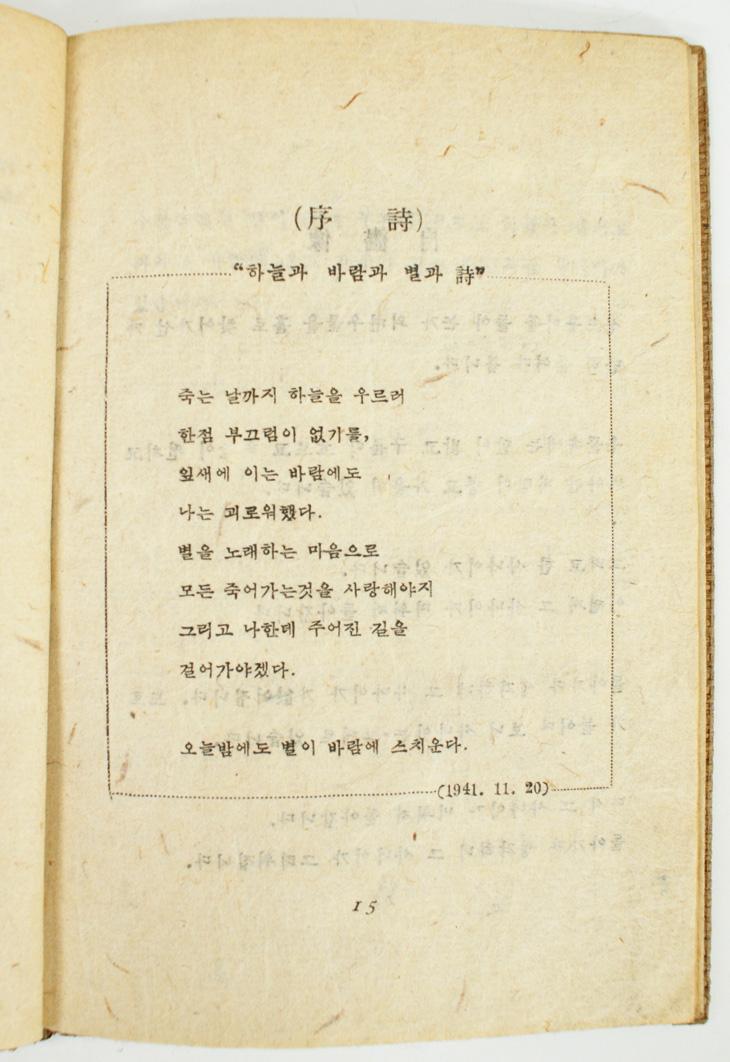 (序 詩)
“하늘과 바람과 별과 詩”
죽는 날까지 하늘을 우르러
한점 부끄럼이 없기를,
잎새에 이는 바람에도
나는 괴로워했다.
별을 노래하는 마음으로
모든 죽어가는것을 사랑해야지
그리고 나한테 주어진 길을
걸어가야겠다.
오늘밤에도 별이 바람에 스치운다.
(1941. 11. 20)
15